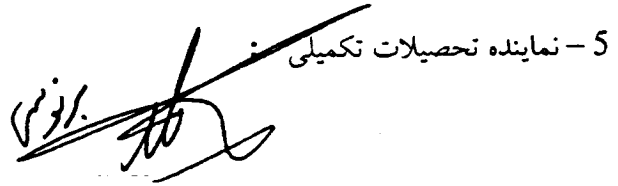 5 – نماینده تحصیلات تکمیلی :